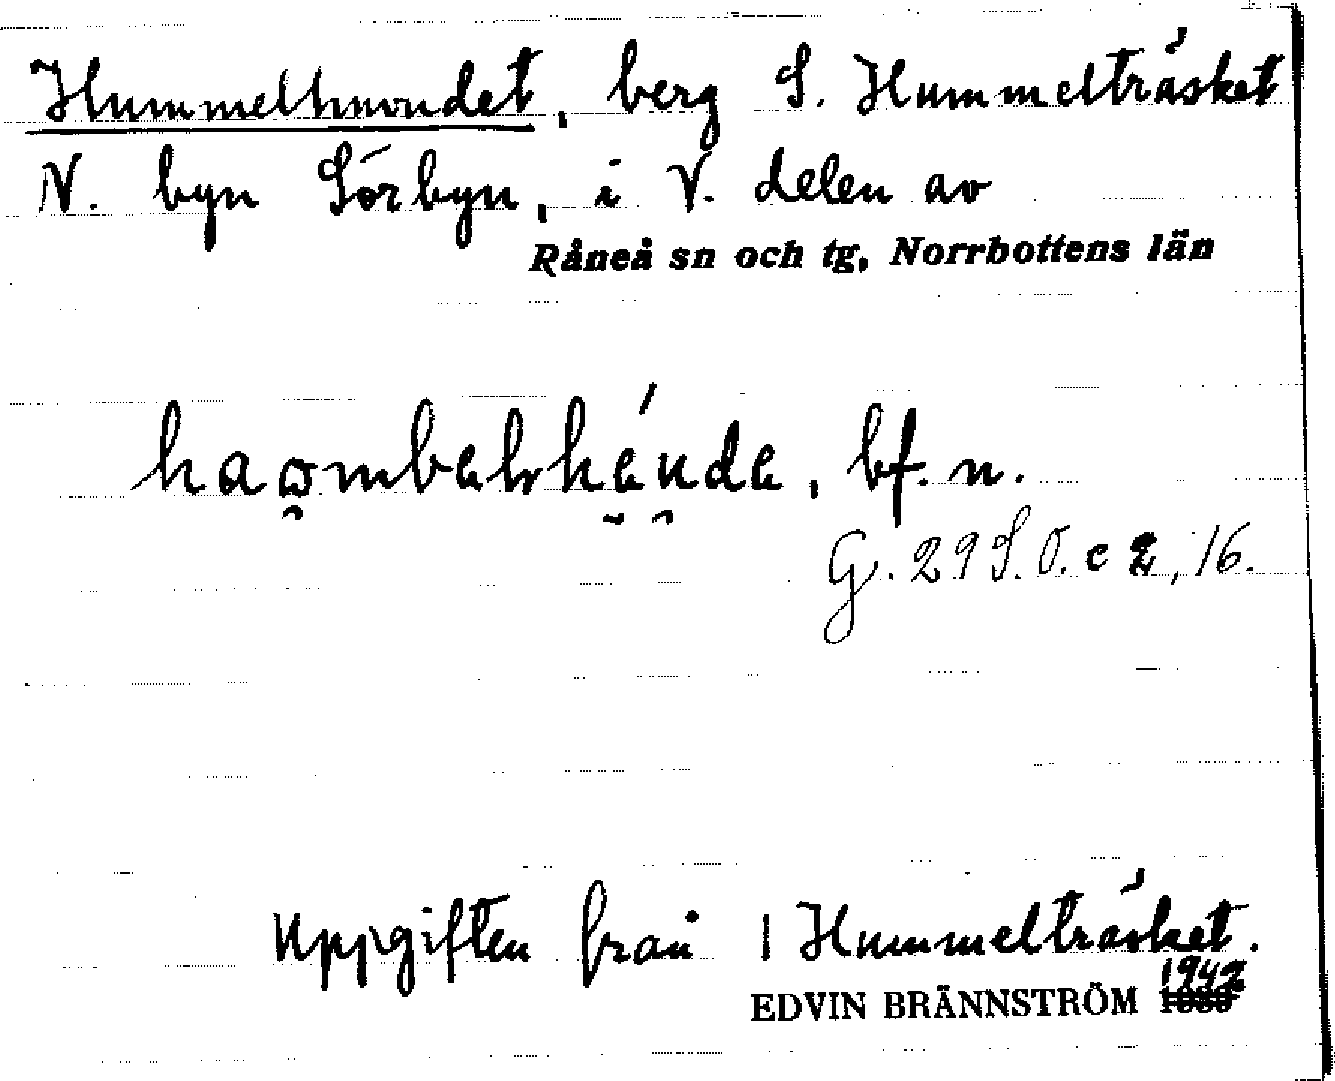 Hummelhuvudet, berg S. Hummelträsket
N. byn Sörbyn, i V. delen av
Råneå sn och tg, Norrbottens län
bf. n.
G. 29 S. O. c 2, 16.
Uppgiften från 1 Hummelträsket.
1942
EDVIN BRÄNNSTRÖM